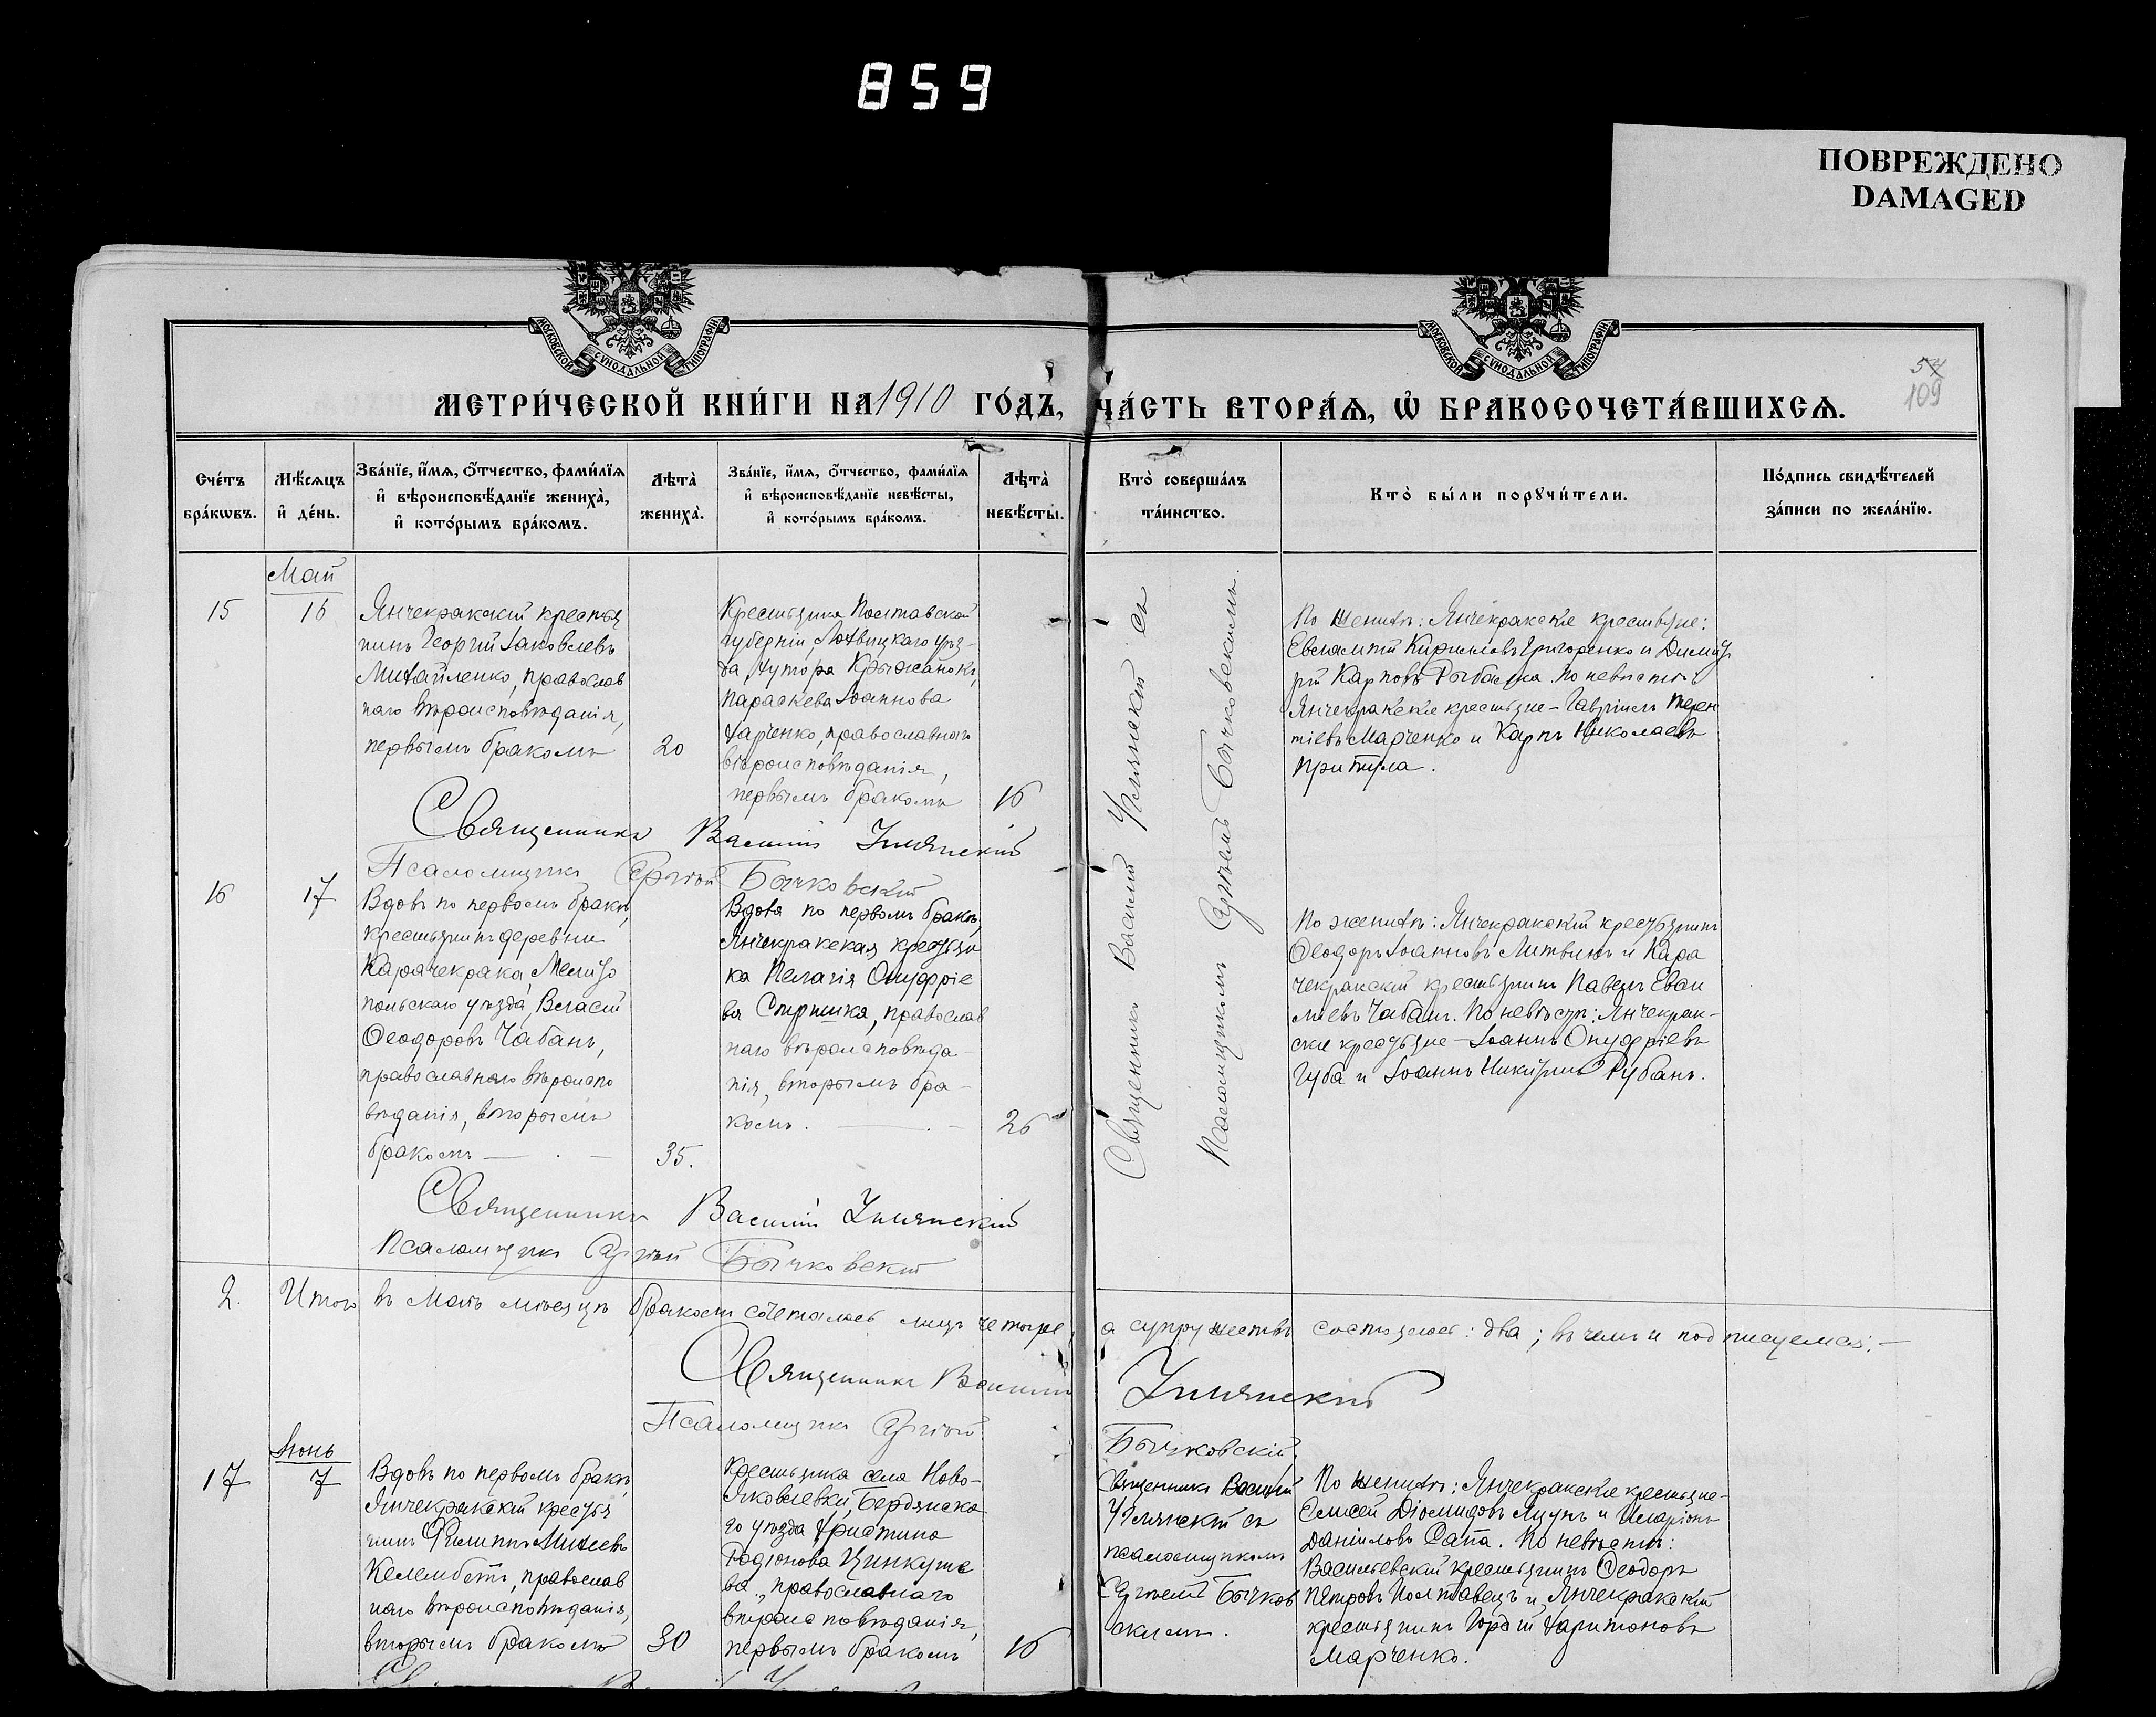 859
ПОВРЕЖДЕНО
DAMAGED
МОСКОВСКОЙ СѴНОДАЛЬНОЙ ТИПОГРАФІИ
МОСКОВСКОЙ СѴНОДАЛЬНОЙ ТИПОГРАФІИ
54
109
МЕТРИ́ЧЕСКОЙ КНИ́ГИ НА 1910 ГО́ДЪ,
ЧА́СТЬ ВТОРА́Ѧ, Ѡ҆ БРАКОСОЧЕТА́ВШИХСѦ.
Сче́тъ
бра́кѡвъ.
Мѣ́сѧцъ
и҆ де́нь.
Зва́нїе, и҆́мѧ, ѻ҆́тчество, фами́лїѧ
и҆ вѣроисповѣ́данїе жениха̀,
и҆ кото́рымъ бра́комъ.
Лѣта̀
жениха̀.
Зва́нїе, и҆́мѧ, ѻ҆́тчество, фами́лїѧ
и҆ вѣроисповѣ́данїе невѣ́сты,
и҆ кото́рымъ бра́комъ.
Лѣта̀
невѣ́сты.
Кто̀ соверша́лъ
та́инство.
Кто̀ бы́ли порꙋчи́тели.
По́дпись свидѣ́телей
за́писи по жела́нїю.
Май
15
16
Янчекракскій крестья
нинъ Георгій Іаковлевъ
Михайленко, православ
наго вѣроисповѣданія,
первымъ бракомъ
20
Крестьянка Полтавской
губерніи, Лохвицкаго уѣз-
да, хутора Крыжанокъ,
Параскева Іоаннова
Харченко, православнаго
вѣроисповѣданія,
первымъ бракомъ
16
Священникъ Василій
Псаломщикомъ Сергіемъ Бычковскимъ.
По женихѣ: Янчекракскіе крестьяне:
Евлампій Кирилловъ Григоренко и Димит
рій Карповъ Рыбалка. По невѣстѣ:
Янчекракскіе крестьяне - Гавріилъ Терен
тіевъ Марченко и Карпъ Николаевъ
Притула.
Священникъ Василій
Псаломщикъ Сергій Бычковскій
16
17
Вдовъ по первомъ бракѣ,
крестьянинъ деревни
Карачекрака, Мелито
польскаго уѣзда, Власій
Ѳеодоровъ Чабанъ,
православнаго вѣроиспо
вѣданія, вторымъ
бракомъ — . —
35.
Вдова по первомъ бракѣ,
Янчекракская крестьян
ка Пелагія Онуфріе
ва, православ
наго вѣроисповѣда-
нія, вторымъ бра-
комъ. — . —
26
По женихѣ: Янчекракскій крестьянинъ
Ѳеодоръ Іоанновъ Литвинъ и Кара
чекракскій крестьянинъ Павелъ
Чабанъ. По невѣстѣ: Янчекрак-
скіе крестьяне - Іоаннъ Онуфріевъ
Губа и Іоаннъ Никитинъ Рубанъ.
Священникъ Василій
Псаломщикъ Сергій Бычковскій
2. Итого въ Маѣ мѣсяцѣ бракомъ сочеталось лицъ четыре,
а супружествъ состоялось: два; въ чемъ и подписуемся: —
Священникъ Василій
Псаломщикъ Сергій
Бычковскій
Іюнь
17
7
Вдовъ по первомъ бракѣ,
Янчекракскій крестья
нинъ Филиппъ Михеевъ
Келембетъ, православ
наго вѣроисповѣданія,
вторымъ бракомъ
30
Крестьянка села Ново-
Яковлевки, Бердянска
го уѣзда Христина
Родіонова Цинкуше
ва, православнаго
вѣроисповѣданія,
первымъ бракомъ
16
Священникъ Василій
съ
псаломщикомъ
Сергіемъ Бычков
скимъ.
По женихѣ: Янчекракскіе крестьяне-
Діомидовъ и Иларіонъ
Даніиловъ Сапа. По невѣстѣ:
Васильевскій крестьянинъ Ѳеодоръ
Петровъ Полтавецъ и Янчекракскій
крестьянинъ Гордій Харитоновъ
Марченко.